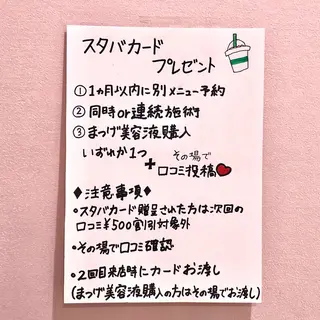 スタバカード
プレゼント
①1ヵ月以内に別メニュー予約
②同時or連続施術
③まつげ美容液購入
いずれか1つ
+その場で
口コミ投稿
◆注意事項◆
・スタバカード贈呈された方は次回の
口コミ¥500割引対象外
・その場で口コミ確認
・2回目来店時にカードお渡し
(まつげ美容液購入の方はその場でお渡し)